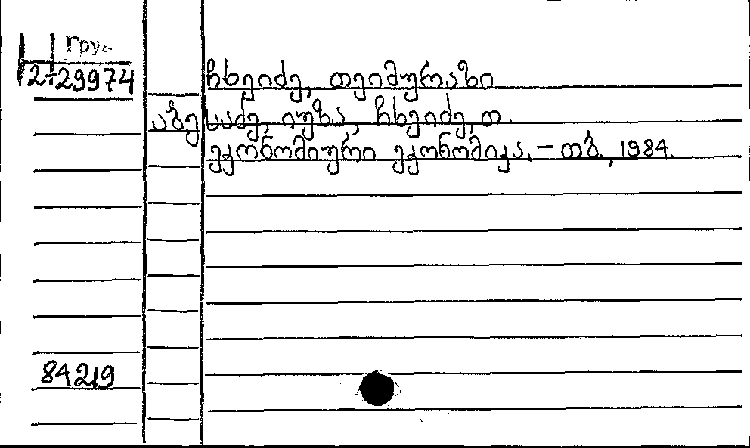 Груз.
2-29974
ჩხეიძე, თეიმურაზი
აბესაძე, იუზა, ჩხეიძე, თ.
ეკონომიური ეკონომიკა. – თბ., 1984.
84219